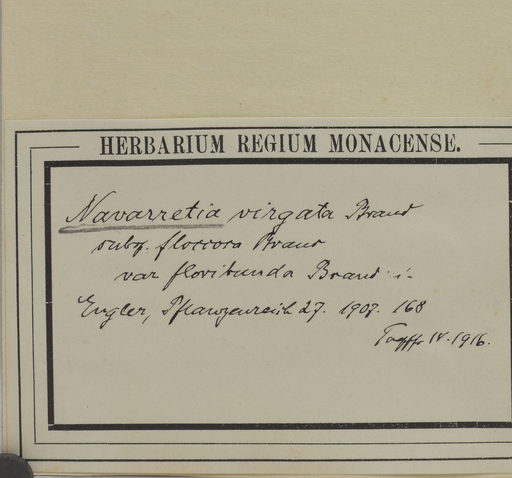 HERBARIUM REGIUM MONACENSE.
Navarretia virgata Brand
subsp. floccosa Brand
var floribunda Brand i.
Engler, Pflanzenreich 27. 1907. 168
IV. 1916.